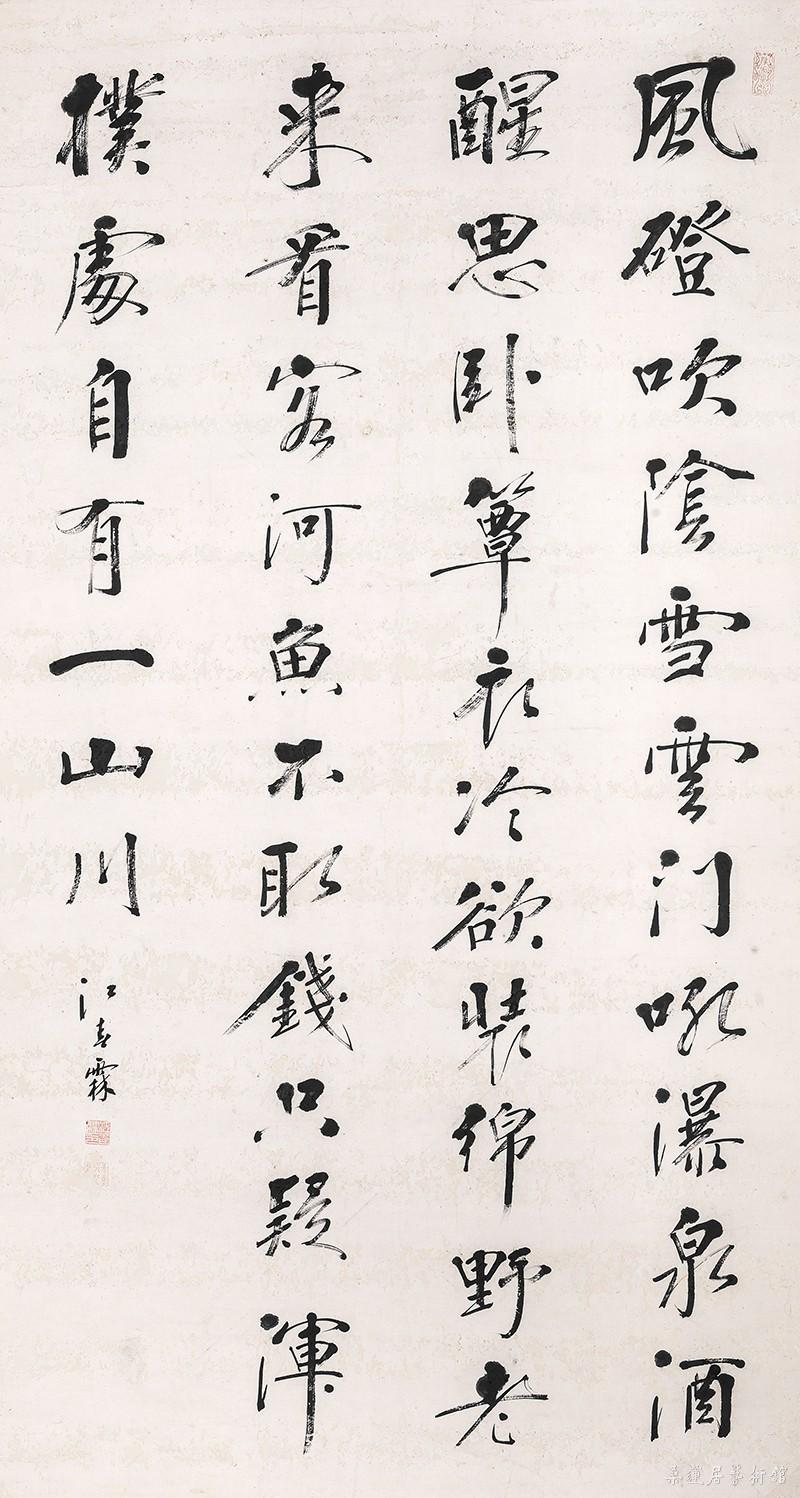 風磴吹陰雪雲门吼瀑泉酒
醒思卧簟衣冷欲裝綿野老
来看客河魚不取錢只疑渾
樸處自有一山川
江春霖